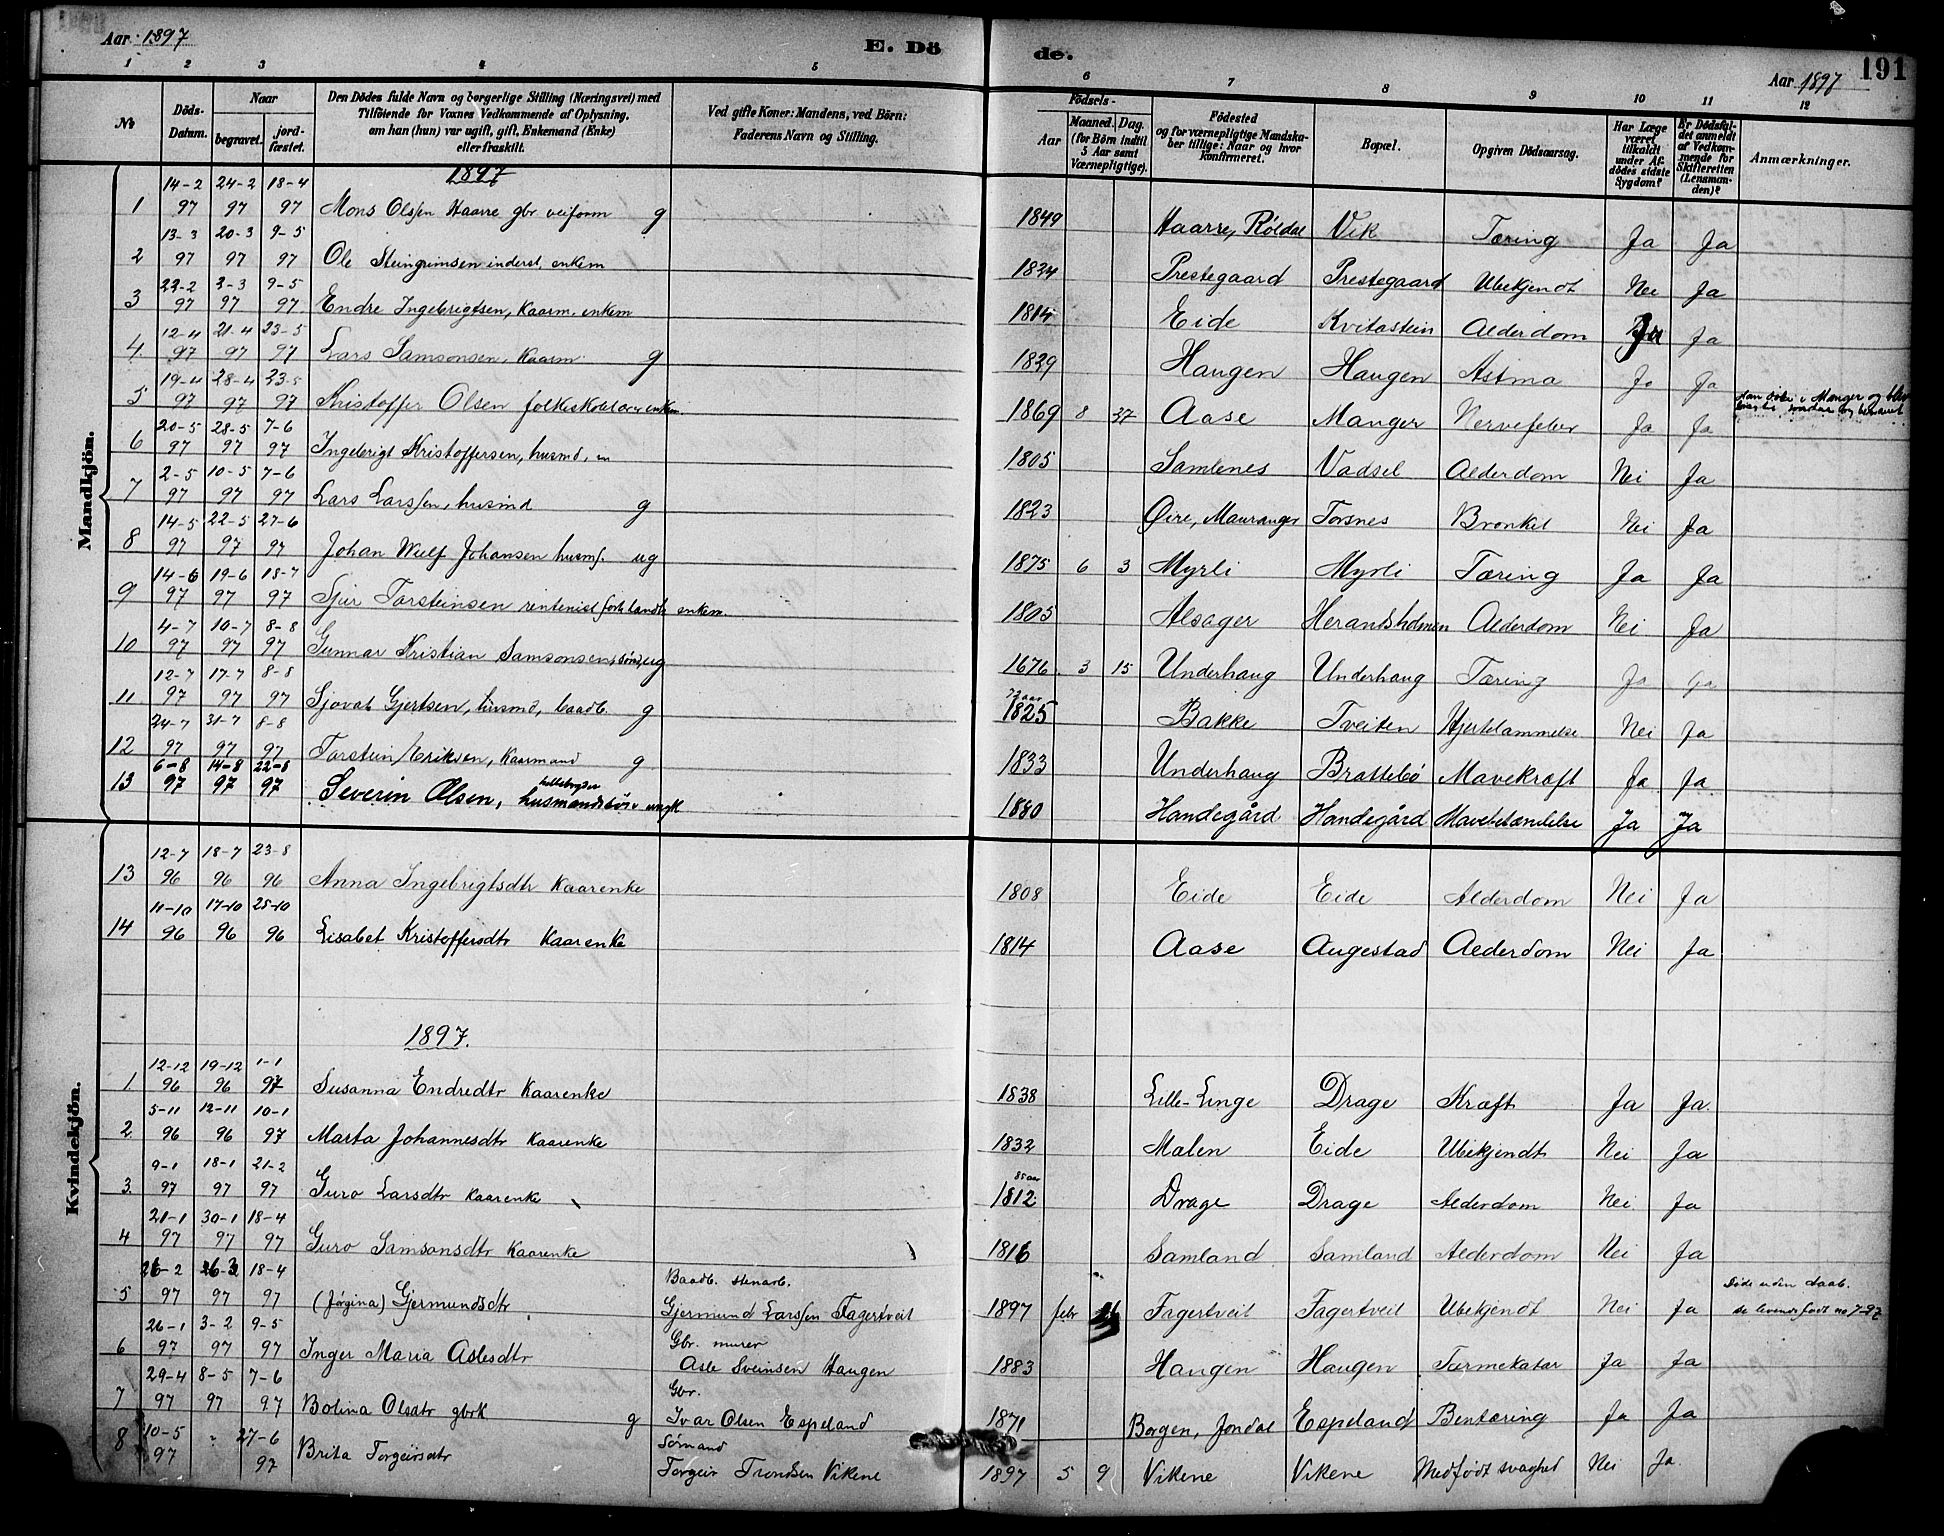 Aar 1897
E. Dö
de.
Aar 1897
191
1 2 3 4 5 6 7 8 9 10 11 12
No
Döds-Datum.
Naar
begravet.
jord-fæstet.
Den Dödes fulde Navn og borgerlige Stilling (Næringsvei) med
Tilföiende for Voxnes Vedkommende af Oplysning,
om han (hun) var ugift, gift, Enkemand (Enke)
eller fraskilt.
Ved gifte Koner: Mandens, ved Börn:
Faderens Navn og Stilling.
Födsels-
Aar
Maaned. Dag.
(for Börn indtil
5 Aar samt
Værnepligtige).
Födested
og for værnepligtige Mandska-
ber tillige: Naar og hvor
konfirmeret.
Bopæl.
Opgiven Dödsaarsag.
Har Læge
været
tilkaldt
under Af-
dödes sidste
Sygdom?
Er Dödsfal-
det anmeldt
af Vedkom-
mende for
Skifteretten
(Lensman-
den)?
Anmærkninger.
Mandkjön.
1897
1 14-2 97 24-2 97 18-4 97 Mons Olssen Haarre gbr veiform g 1849 Haarre, Röldal Vik Tæring Ja Ja
2 13-3 97 20-3 97 9-5 97 Ole Steingrimsen inderst, enkem 1824 Prestegaard Prestegaard Ubekjendt Nei Ja
3 22-2 97 2-3 97 9-5 97 Endre Ingebrigtsen, Kaarm. enkem 1814 Eide Kvitastein Alderdom Ja Ja
4 12-4 97 21-4 97 23-5 97 Lars Samsonsen, Kaarm g 1829 Haugen Haugen Astma Ja Ja
5 19-4 97 28-4 97 23-5 97 Kristoffer Olsen 1869 8 Aase Manger Nervefeber Ja Ja Han döde i Manger og blev
6 20-5 97 28-5 97 7-6 97 Ingebrigt Kristoffersen, husmd, 1805 Samlenes Vadsel Alderdom Nei Ja
7 2-5 97 10-5 97 7-6 97 Lars Larssen, husmd g 1823 Öire, Mauranger Torsnes Bronkit Nei Ja
8 14-5 97 22-5 97 27-6 97 Johan Wulf Johansen husms. ug 1875 6 3 Myrli Myrli Tæring Ja Ja
9 14-6 97 19-6 97 18-7 97 Sjur Torsteinsen rentenist enkem. 1805 Alsager Herandsholmen Alderdom Nei Ja
10 4-7 97 10-7 97 8-8 97 Gunnar Kristian Samsonsen, ug 1676 3 15 Underhaug Underhaug Tæring Ja Ja
11 12-7 97 17-7 97 8-8 97 Sjovat Gjertsen, husmd, baadb. g 72 aar 1825 Bakke Tveiten Hjertelammelse Nei Ja
12 24-7 97 31-7 97 8-8 97 Torstein Eriksen, Kaarmand g 1833 Underhaug Brattebö Mavekræft Ja Ja
13 6-8 97 14-8 97 22-8 97 Severin Olsen, 1880 Handegård Handegård Mavebetændelse Ja Ja
Kvindekjön.
13 12-7 96 18-7 96 23-8 96 Anna Ingebrigtsdtr Kaarenke 1808 Eide Eide Alderdom Nei Ja
14 11-10 96 17-10 96 25-10 96 Lisabet Kristoffersdtr Kaarenke 1814 Aase Augestad Alderdom Nei Ja
1897.
1. 12-12 96 19-12 96 1-1 97 Susanna Endredtr Kaarenke 1838 Lille-Linge Drage Kræft Ja Ja.
2. 5-11 96 12-11 96 10-1 97 Marta Johannesdtr Kaarenke 1832 Malen Eide Ubekjendt Nei Ja
3. 9-1 97 18-1 97 21-2 97 Guro Larsdtr Kaarenke 85 aar 1812 Drage Drage Alderdom Nei Ja
4 21-1 97 30-1 97 18-4 97 Guro Samsonsdtr Kaarenke 1816 Samland Samland Alderdom Nei Ja
5 26-2 97 26-2 97 18-4 97 (Jörgina) Gjermundsdtr Baadb. stenarb. Gjermund Larssen Fagertveit 1897 febr Fagertveit Fagertveit Ubekjendt Nei Ja Döde uden daab. se levende födt no 7-97
6 26-1 97 3-2 97 9-5 97 Inger Maria Aslesdtr Gbr. murer Asle Sveinsen Haugen 1883 Haugen Haugen Tarmekatar Ja Ja
7 29-4 97 8-5 97 7-6 97 Bolina Olsdtr gbrk g Gbr. Ivar Olsen Espeland 1871 Borgen, Jondal Espeland Bentæring Ja Ja
8 10-5 97 " 27-6 97 Brita Torgeirsdtr Sömand Torgeir Trondsen Vikene 1897 5 9 Vikene Vikene Medfödt svaghet Nei Ja.